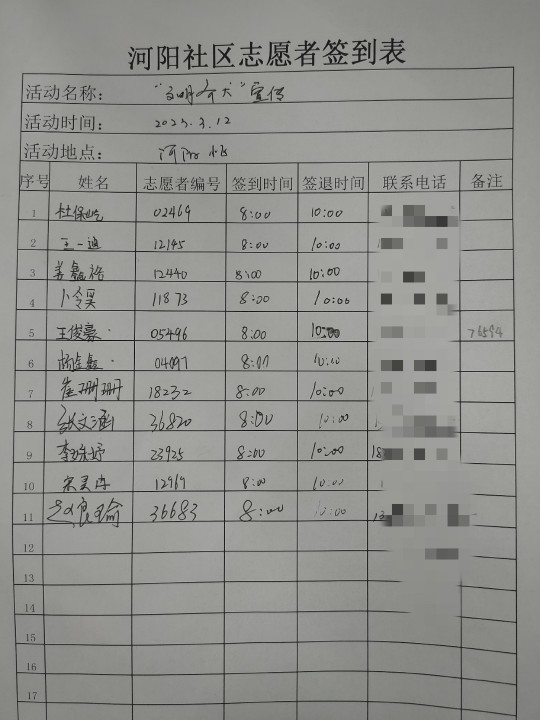 河阳社区志愿者签到表
活动名称： "文明养犬"宣传
活动时间： 2023.3.12
活动地点： 河阳
序号 姓名 志愿者编号 签到时间 签退时间 联系电话 备注
1 杜保屹 02469 8:00 10:00
2 王一迪 12145 8:00 10:00
3 姜鑫裕 12440 8:00 10:00
4 卜令昊 11873 8:00 10:00
5 王俊豪 05496 8:00 10:00 76594
6 杨金鑫 04097 8:00 10:10
7 崔珊珊 18232 8:00 10:00
8 张文涵 36820 8:00 10:00
9 李 妤 23925 8:00 10:00 18
10 宋灵冉 12969 8:00 10:00
11 赵良瑜 36683 8:00 10:00 13
12
13
14
15
16
17